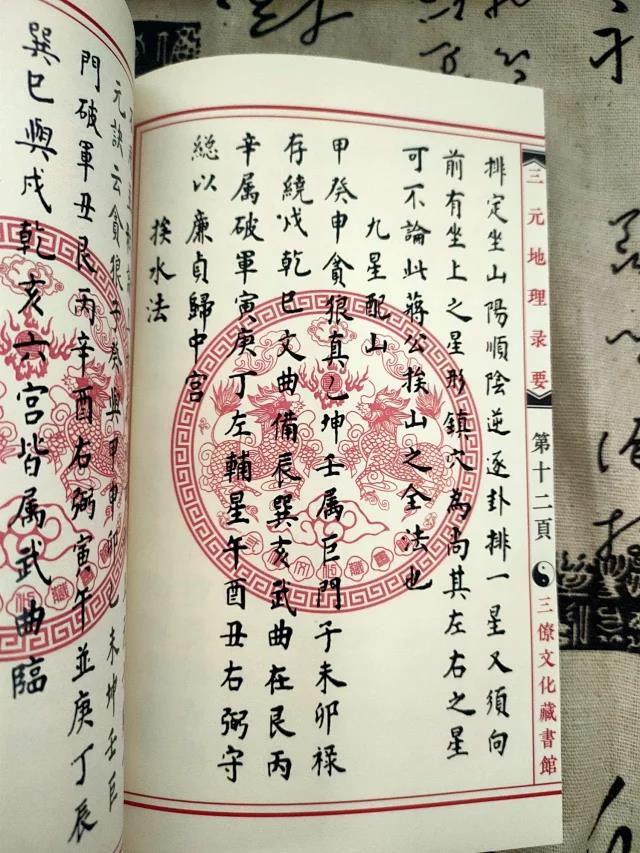 三元地理录要
第十二頁
三僚文化藏書館
排定坐山陽順陰逆逐卦排一星又須向
前有坐上之星形鎮穴為尚其左右之星
可不論此蔣公挨山之全法也
九星配山
甲癸申貪狼真乙坤壬属巨門子未卯祿
存繞戌乾巳文曲備辰巽亥武曲在艮丙
辛属破軍寅庚丁左輔星午酉丑右弼守
總以廉貞歸中宮
挨水法
元訣云貪狼子癸與甲申卯乙未坤壬巨
門破軍丑艮丙辛酉右弼寅午並庚丁辰
巽巳與戌乾亥六宮皆属武曲臨